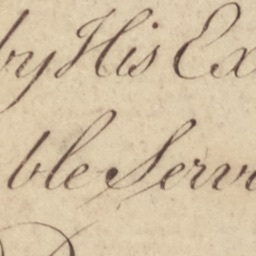 by His Ex
ble Serv